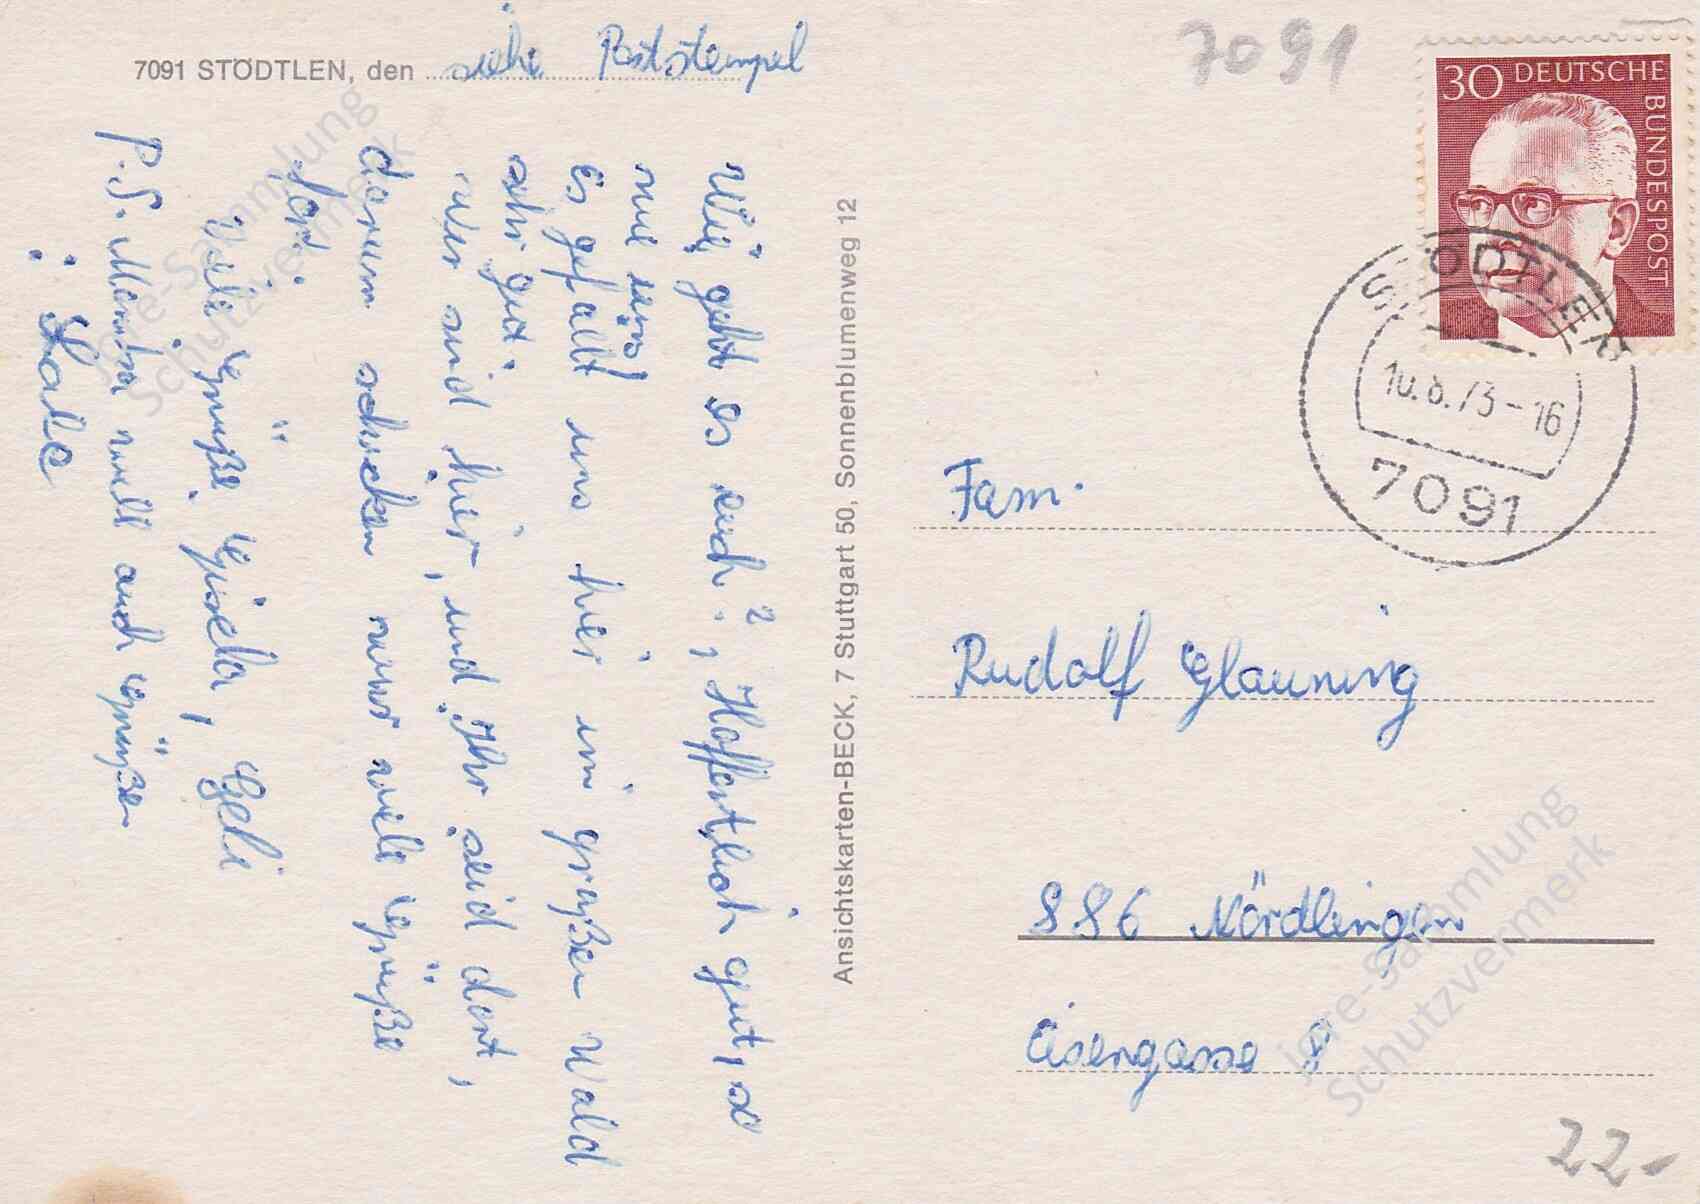 7091 STÖDTLEN, den siehe Poststempel
Wie geht es euch?, Hoffentlich gut, so
wie uns!
Es gefällt uns hier im großen Wald
sehr gut.
Wir sind hier, und Ihr seid dort,
darum schicken wir viele Grüße
fort.
Viele Grüße Gisela, Geli
P.S. Martha will auch Grüßen
Ansichtskarten-BECK, 7 Stuttgart 50, Sonnenblumenweg 12
7091
30 DEUTSCHE
BUNDESPOST
STÖDTLEN
10.8.73-16
7091
Fam.
Rudolf Glauning
886 Nördlingen
Eisengasse 8
22.-
jore-Sammlung
Schutzvermerk
jore-Sammlung
Schutzvermerk